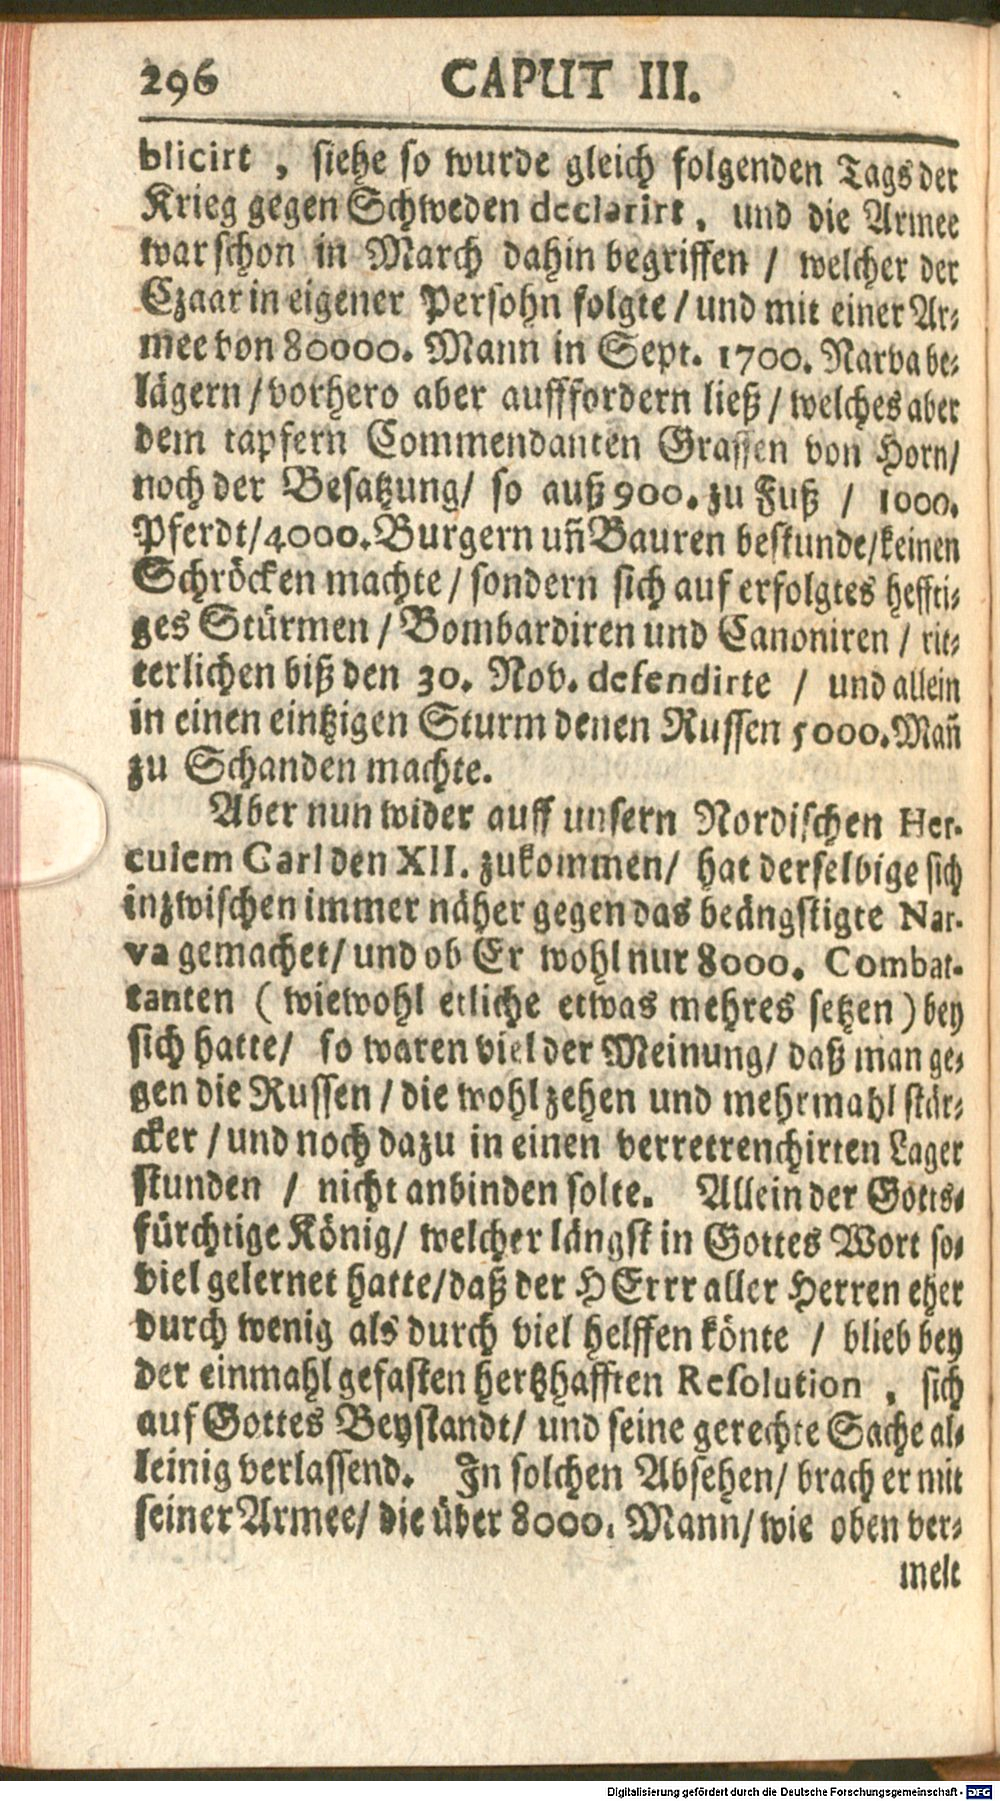 296 CAPUT III.
blicirt , siehe so wurde gleich folgenden Tags der
Krieg gegen Schweden declarirt , und die Armee
war schon in March dahin begriffen / welcher der
Czaar in eigener Persohn folgte / und mit einer Ar-
mee von 80000. Mann in Sept. 1700. Narva be-
lägern / vorhero aber aufffordern ließ / welches aber
dem tapfern Commendanten Graffen von Horn/
noch der Besatzung/ so auß 900. zu Fuß / 1000.
Pferdt/4000. Burgern uñ Bauren bestunde/keinen
Schröcken machte / sondern sich auf erfolgtes heffti-
ges Stürmen / Bombardiren und Canoniren / rit-
terlichen biß den 30. Nov. defendirte / und allein
in einen eintzigen Sturm denen Russen 5000. Mañ
zu Schanden machte.
Aber nun wider auff unsern Nordischen Her-
culem Carl den XII. zukommen/ hat derselbige sich
inzwischen immer näher gegen das beängstigte Nar-
va gemachet/ und ob Er wohl nur 8000. Combat-
tanten ( wiewohl etliche etwas mehres setzen ) bey
sich hatte/ so waren viel der Meinung/ daß man ge-
gen die Russen / die wohl zehen und mehrmahl stär-
cker / und noch dazu in einen verretrenchirten Lager
stunden / nicht anbinden solte. Allein der Gotts-
fürchtige König/ welcher längst in Gottes Wort so-
viel gelernet hatte/daß der HErrr aller Herren eher
durch wenig als durch viel helffen könte / blieb bey
der einmahl gefasten hertzhafften Resolution , sich
auf Gottes Beystandt/ und seine gerechte Sache al-
leinig verlassend. In solchen Absehen/ brach er mit
seiner Armee/ die über 8000. Mann/ wie oben ver-
melt
Digitalisierung gefördert durch die Deutsche Forschungsgemeinschaft - DFG